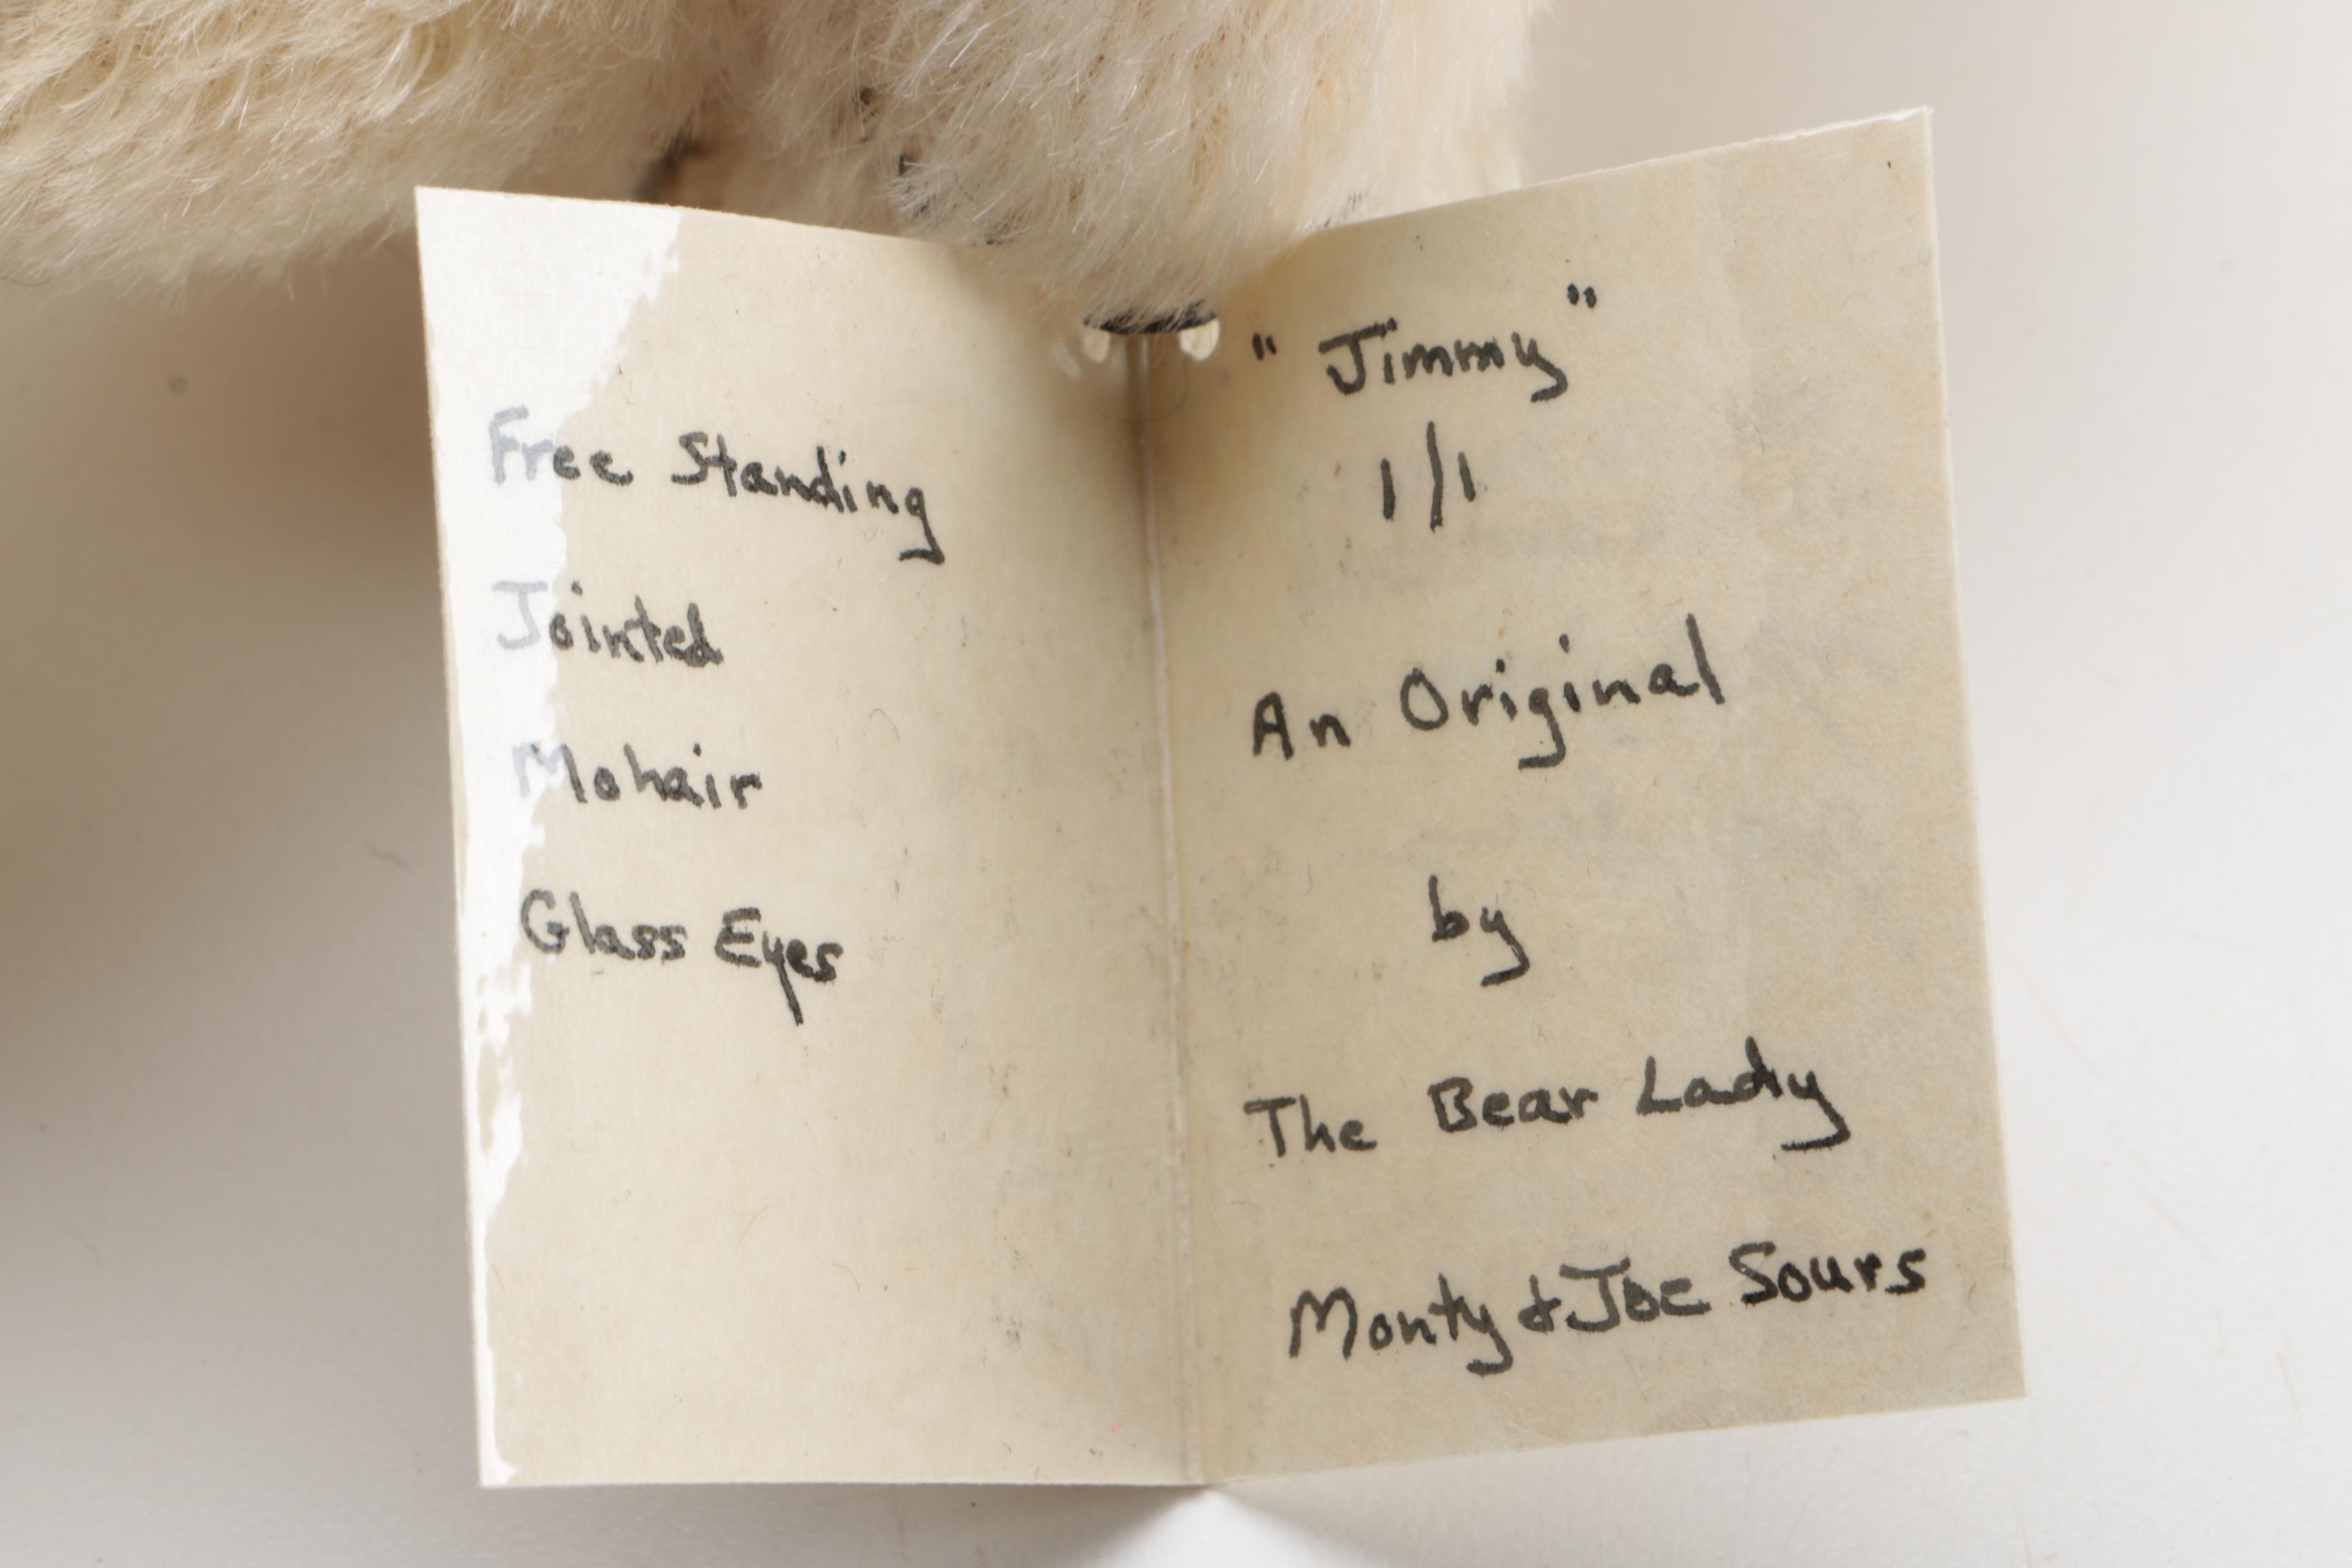 Free Standing
Jointed
Mohair
Glass Eyes
"Jimmy"
1/1
An Original
by
The Bear Lady
Monty & Joe Sours